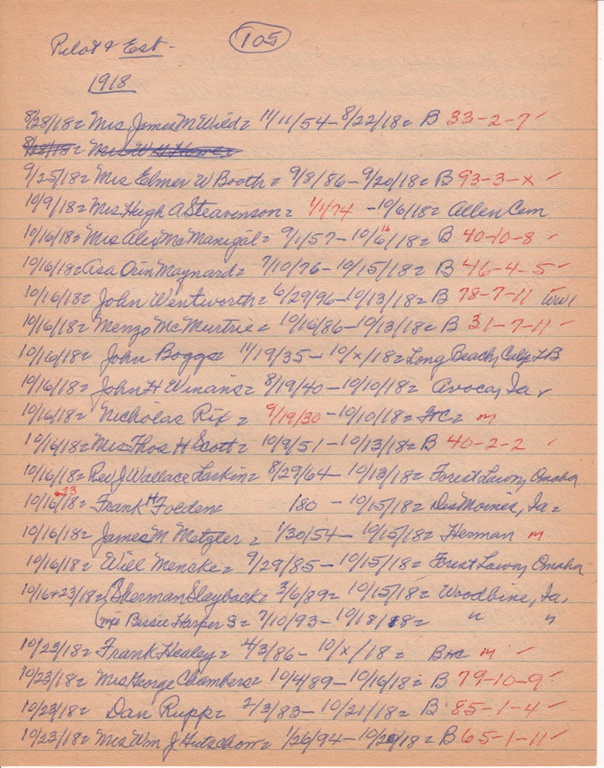 Pilot & Est-
105
1918
8/28/18= Mrs James M Wied= 11/11/54-8/22/18= B 33-2-7 ✓
9/25/18= Mrs Elmer W Booth= 9/8/86-9/20/18= B 93-3-x ✓
10/9/18= Mrs Hugh A Steavenson= 1/1/74 -10/6/18= Allen Cem
10/16/18= Mrs Alex McManigal= 9/1/57-10/6/18= B 40-10-8 ✓
10/16/18= Asa Orin Maynard= 7/10/76-10/15/18= B 46-4-5 ✓
10/16/18= John Wentworth= 6/29/96-10/13/18= B 78-7-11 WW1
10/16/18= Menzo McMurtrie= 10/16/86-10/13/18= B 31-7-11 ✓
10/16/18= John Boggs= 11/19/35-10/x/18= Long Beach, Calif LB
10/16/18= John H Winans= 8/19/40-10/10/18= Avoca, Ia,
10/16/18= Nicholas Rix= 9/19/30 -10/10/18= m
10/16/18= Mrs Thos H Scott= 10/9/51-10/13/18= B 40-2-2 ✓
10/16/18= Rev J Wallace Larkin= 8/29/64-10/13/18= Forest Lawn, Omaha
10/16/18= 23 Frank Folden= 180 -10/15/18= Des Moines, Ia=
10/16/18= James M Metzler= 1/30/54-10/15/18= Herman m
10/16/18= Will Mencke= 9/29/85-10/15/18= Forest Lawn, Omaha
10/16+23/18= (Sherman Slayback= 3/6/89= 10/15/18= Woodbine, Ia,
(Mrs Bessie Harper S= 7/10/93-10/18/18= " "
10/23/18= Frank Healey= 4/3/86-10/x/18= m ✓
10/23/18= Mrs George Chambers= 10/4/89-10/16/18= B 79-10-9 ✓
10/23/18= Dan Rupp= 2/3/83-10/21/18= B 85-1-4 ✓
10/23/18= Mrs Wm J Hutschow= 1/26/94-10/20/18= B 65-1-11 ✓